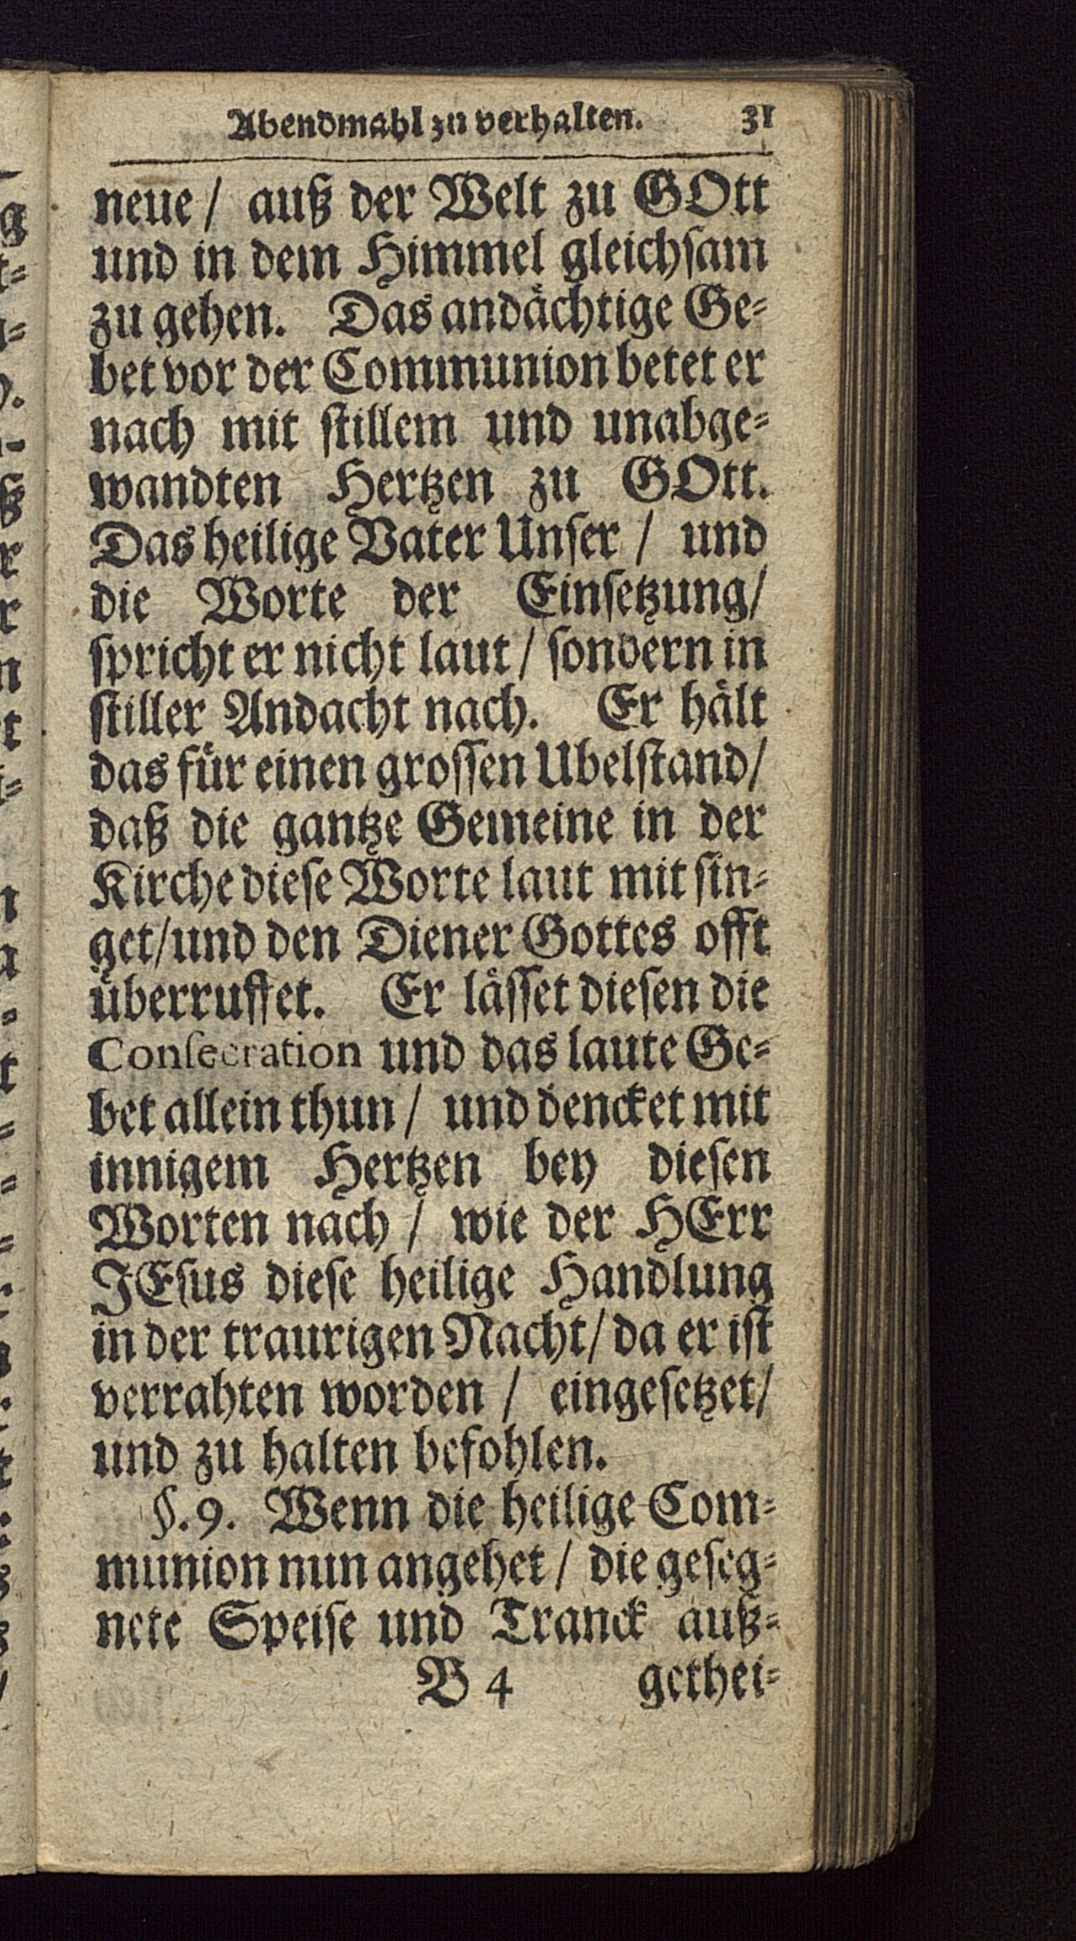 Abendmahl zu verhalten. 31
neue / auß der Welt zu GOtt
und in dem Himmel gleichsam
zu gehen. Das andächtige Ge-
bet vor der Communion betet er
nach mit stillem und unabge-
wandten Hertzen zu GOtt.
Das heilige Vater Unser / und
die Worte der Einsetzung/
spricht er nicht laut / sondern in
stiller Andacht nach. Er hält
das für einen grossen Ubelstand/
daß die gantze Gemeine in der
Kirche diese Worte laut mit sin-
get/und den Diener Gottes offt
überruffet. Er lässet diesen die
Consecration und das laute Ge-
bet allein thun / und dencket mit
innigem Hertzen bey diesen
Worten nach / wie der HErr
JEsus diese heilige Handlung
in der traurigen Nacht/ da er ist
verrahten worden / eingesetzet/
und zu halten befohlen.
§. 9. Wenn die heilige Com-
munion nun angehet / die geseg-
nete Speise und Tranck auß-
B 4 gethei-